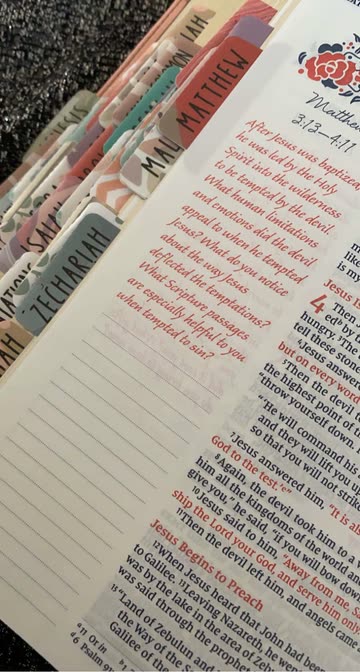 IAH
MATTHEW
MAL
ZECHARIAH
Matthew
3:13–4:11
After Jesus was baptized
he was led by the Holy
Spirit into the wilderness
to be tempted by the devil.
What human limitations
and emotions did the devil
appeal to when he tempted
Jesus? What do you notice
about the way Jesus
deflected the temptations?
What Scripture passages
are especially helpful to you
when tempted to sin?
like
is my
Jesus
4 Then
ed by t
hungry. ³Th
tell these stone
⁴Jesus answere
but on every word
⁵Then the devil
the highest point of t
throw yourself down.
"He will command hi
and they will lift you
so that you will not stri
⁷Jesus answered him, "It is als
God to the test.'
⁸Again, the devil took him to a v
him all the kingdoms of the world
give you," he said, "if you will bow dow
¹⁰Jesus said to him, "Away from me, S
ship the Lord your God, and serve him only
¹¹Then the devil left him, and angels cam
Jesus Begins to Preach
¹²When Jesus heard that John had l
to Galilee. ¹³Leaving Nazareth, he
was by the lake in the area of Z
was said through the prophet
¹⁵"Land of Zebulun and
the Way of the S
Galilee of the
Or in
6 Psalm 91